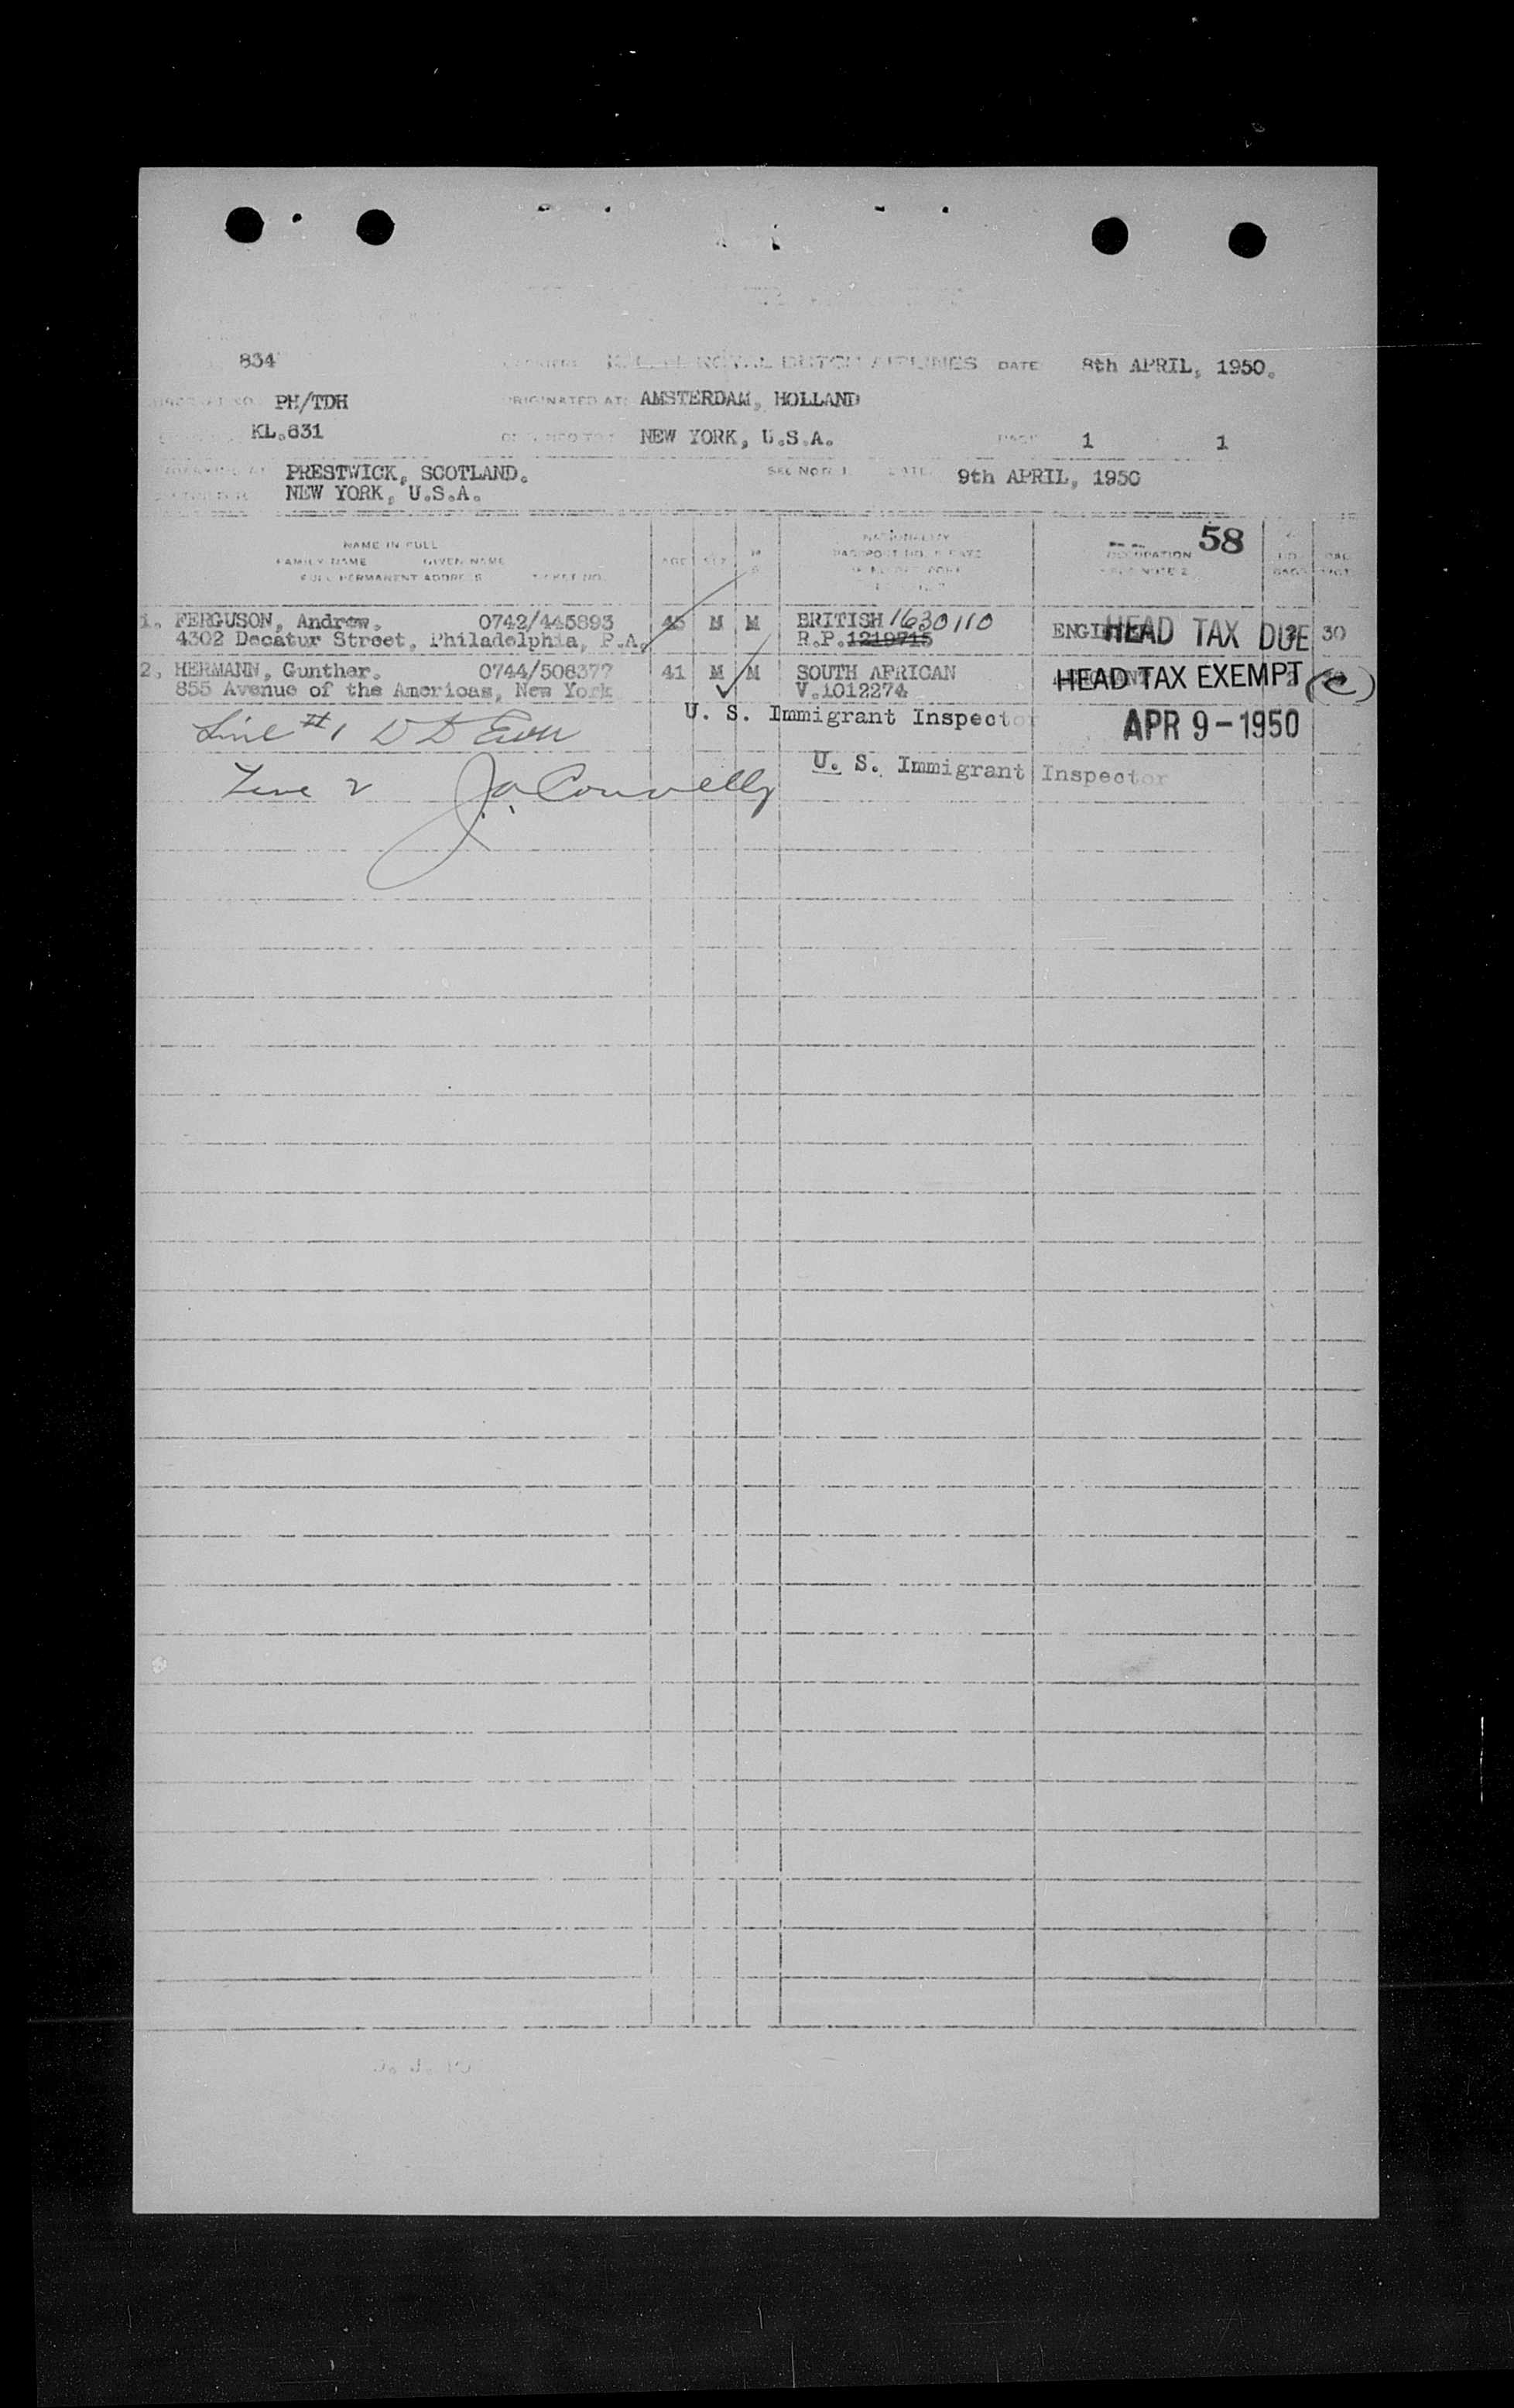 834 K.L.M. ROYAL DUTCH AIRLINES DATE 8th APRIL, 1950.
PH/TDH ORIGINATED AT: AMSTERDAM, HOLLAND
KL.831 NEW YORK, U.S.A. PAGE 1 1
PRESTWICK, SCOTLAND. SEE NOTE 1. DATE 9th APRIL, 1950
NEW YORK, U.S.A.
58
NAME IN FULL NATIONALITY
FAMILY NAME GIVEN NAME AGE SEX PASSPORT NO. OCCUPATION
FULL PERMANENT ADDRESS TICKET NO. SEE NOTE 2
1. FERGUSON, Andrew. 0742/445893 45 M M BRITISH 1630110 HEAD TAX DUE 30
4302 Decatur Street, Philadelphia, P.A. R.P.1219715
2. HERMANN, Gunther. 0744/508377 41 M M SOUTH AFRICAN HEAD TAX EXEMPT (c)
855 Avenue of the Americas, New York V.1012274
U. S. Immigrant Inspector APR 9-1950
Line #1 D D
U. S. Immigrant Inspector
Line 2 J. Connelly